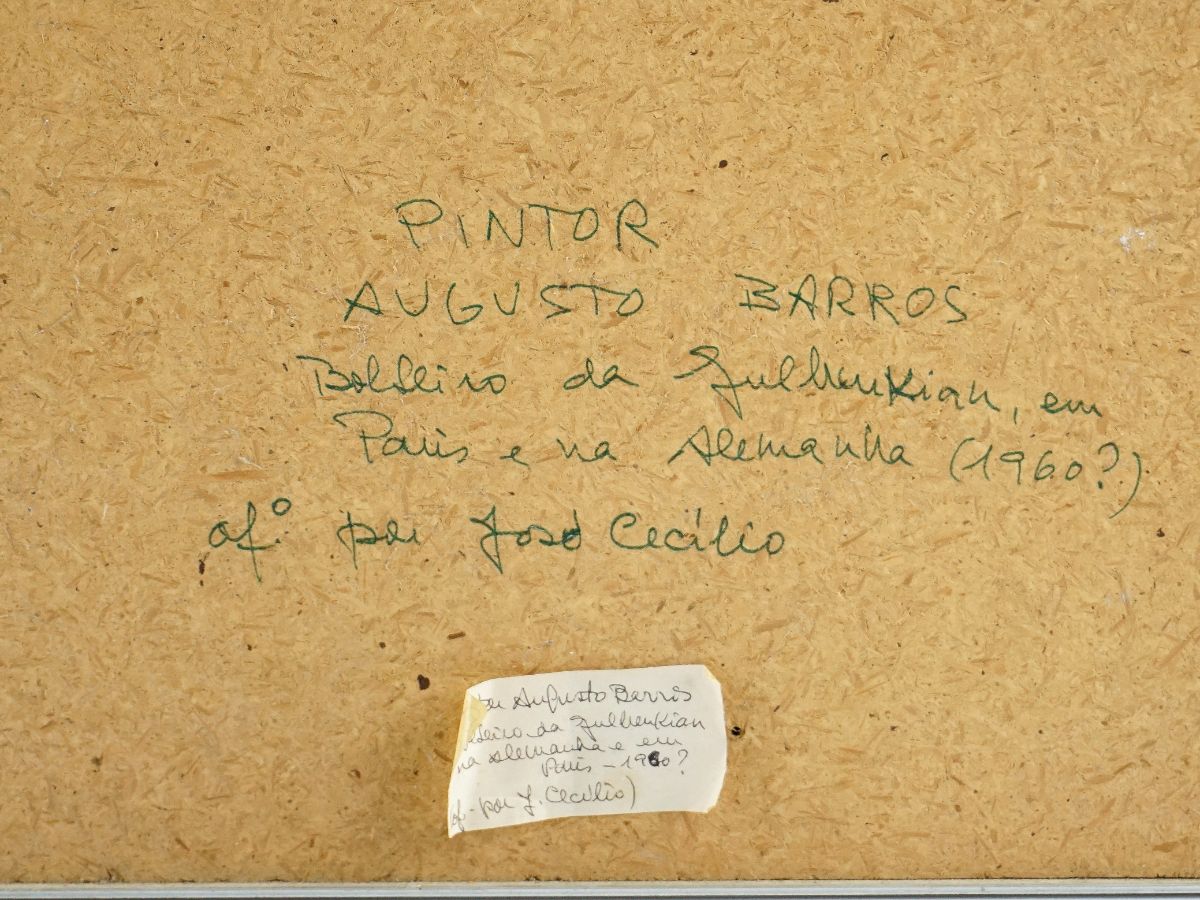 PINTOR
AUGUSTO BARROS
Bolseiro da Gulbenkian, em
Paris e na Alemanha (1960?)
of.º por José Cecílio
Augusto Barros
da Gulbenkian
na Alemanha e em
Paris - 1960?
of. por J. Cecílio)